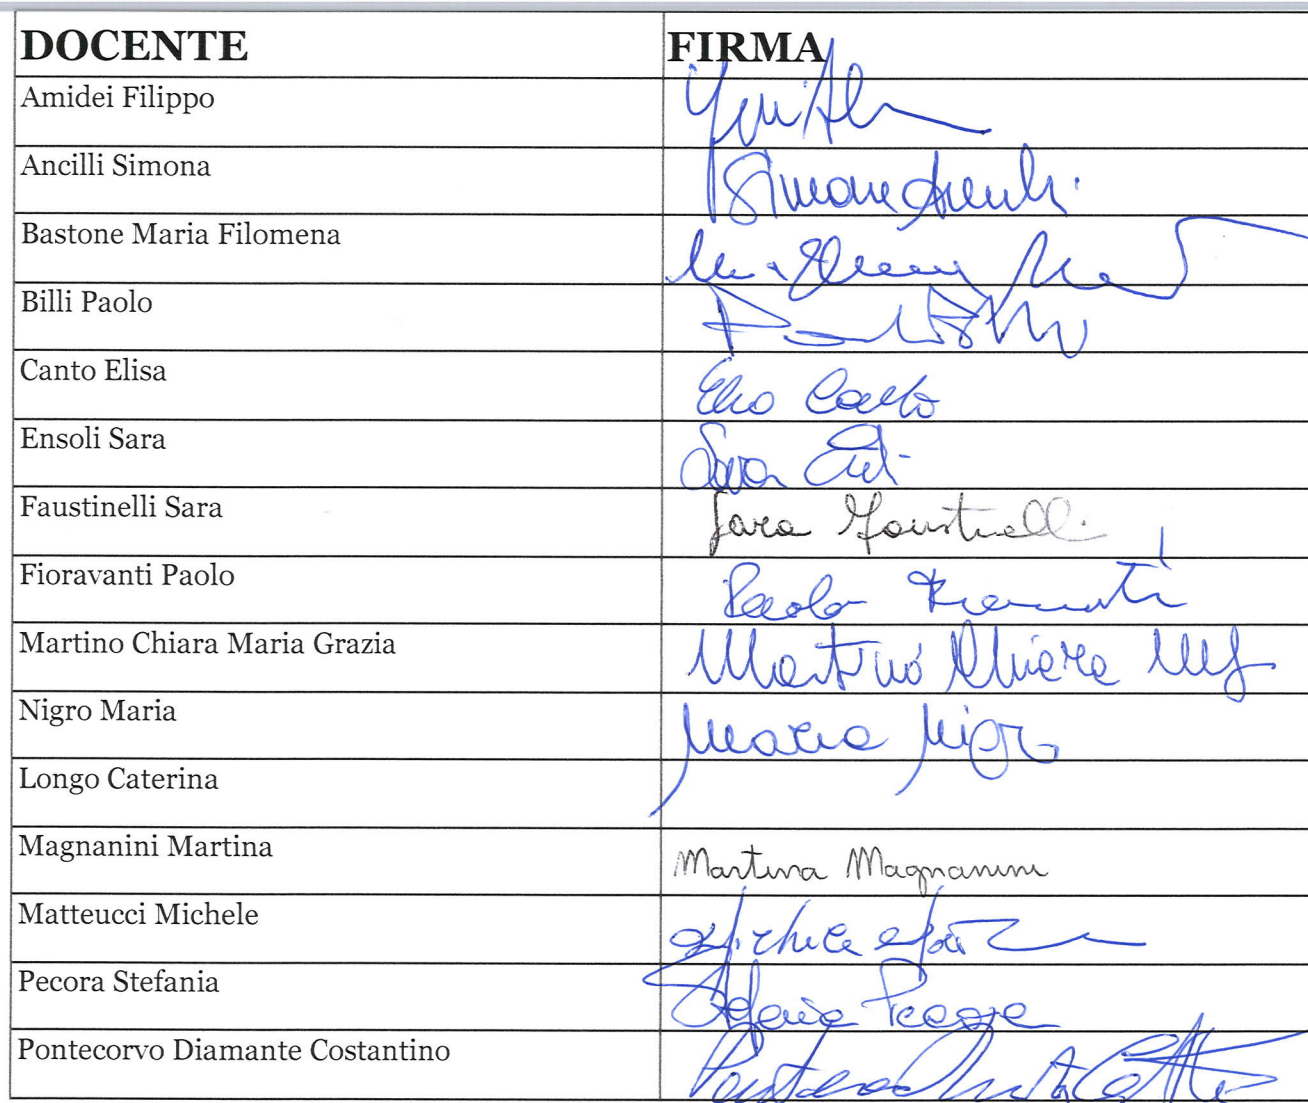 DOCENTE FIRMA
Amidei Filippo
Ancilli Simona Simona Ancilli
Bastone Maria Filomena
Billi Paolo Paolo Billi
Canto Elisa Elisa Canto
Ensoli Sara Sara
Faustinelli Sara Sara Faustinelli
Fioravanti Paolo Paolo Fioravanti
Martino Chiara Maria Grazia Martino Chiara
Nigro Maria Maria Nigro
Longo Caterina
Magnanini Martina Martina Magnanini
Matteucci Michele Michele
Pecora Stefania Stefania Pecora
Pontecorvo Diamante Costantino